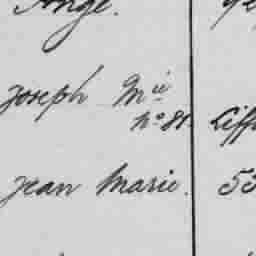 Ange.
Joseph Mie
No 81.
Jean Marie. 53